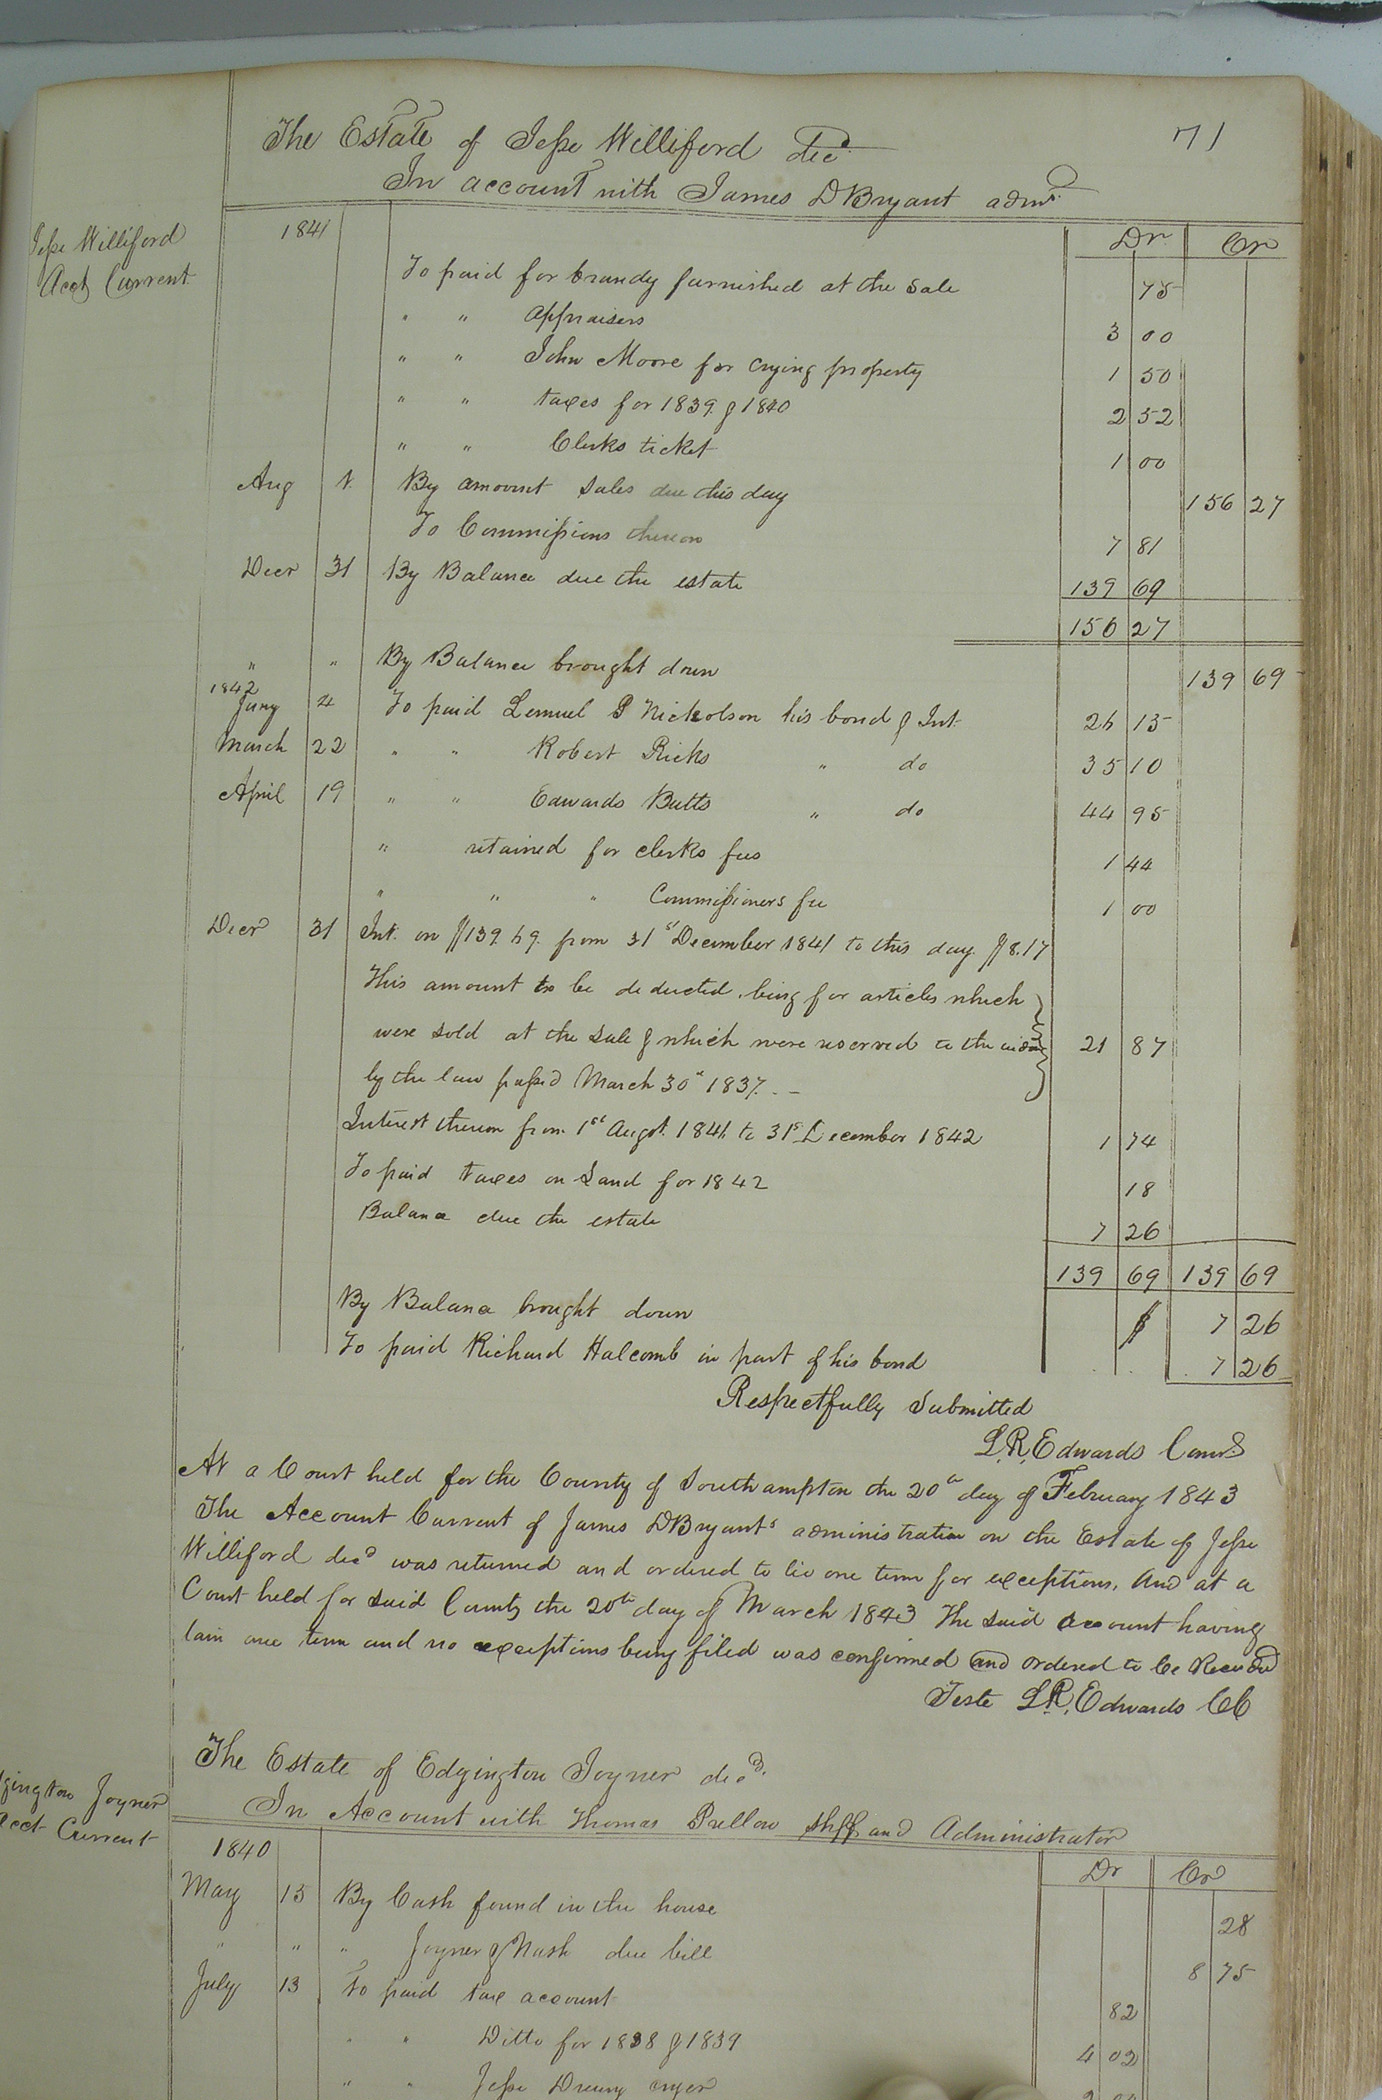 71
The Estate of Jesse Williford decd
In account with James D Bryant admr
Jesse Williford
Acct Current
1841
Dr Cr
To paid for brandy furnished at the sale 75
" " appraisers 3 00
" " John Moore for crying property 1 50
" " taxes for 1839 & 1840 2 52
" " Clerks ticket 1 00
Aug 1 By amount sales due this day 156 27
To Commissions thereon 7 81
Decr 31 By Balance due the estate 139 69
156 27
" " By Balance brought down 139 69
1842
Jany 4 To paid Lemuel P Nickolson his bond & Int 26 15
March 22 " " Robert Ricks " do 35 10
April 19 " " Edwards Butts " do 44 95
" retained for clerks fees 1 44
" " " Commissioners fee 1 00
Decr 31 Int. on $139.69. from 31st December 1841 to this day $8.17
This amount to be deducted, being for articles which
were sold at the sale & which were reserved to the widow 21 87
by the law passed March 30th 1837. -
Interest thereon from 1st Augst 1841 to 31st December 1842 1 74
To paid taxes on Land for 1842 18
Balance due the estate 7 26
139 69 139 69
By Balance brought down $ 7 26
To paid Richard Halcomb in part of his bond 7 26
Respectfully Submitted
L.R. Edwards Comr
At a Court held for the County of Southampton the 20th day of February 1843
The Account Current of James D Bryants administration on the Estate of Jesse
Williford decd was returned and ordered to lie one term for exceptions, And at a
Court held for said County the 20th day of March 1843 The said account having
lain one term and no exceptions being filed was confirmed and ordered to be Recorded
Teste L.R. Edwards CC
The Estate of Edgington Joyner decd.
In Account with Thomas Pretlow shff and Administrator
gington Joyner
Acct Current
1840
Dr Cr
May 15 By Cash found in the house 28
" " " Joyner & Nash due bill 8 75
July 13 To paid tax account 82
" " Ditto for 1838 & 1839 4 02
" " Jesse Drewry cryer